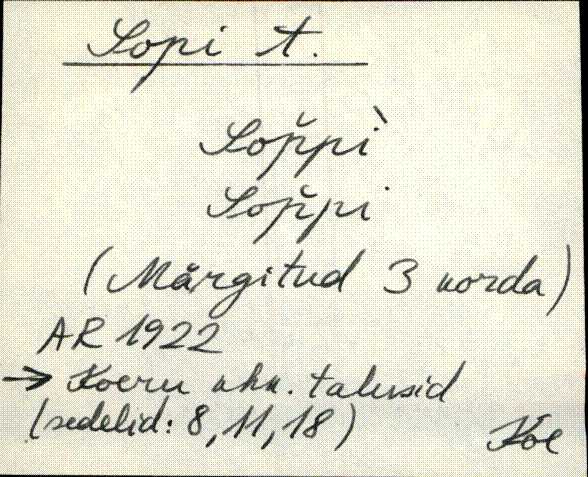 Sopi t.
Sop̆pì
Sop̆pi
(Märgitud 3 korda)
AR 1922
→ Koeru khk. talusid
(sedelid: 8, 11, 18)
Koe